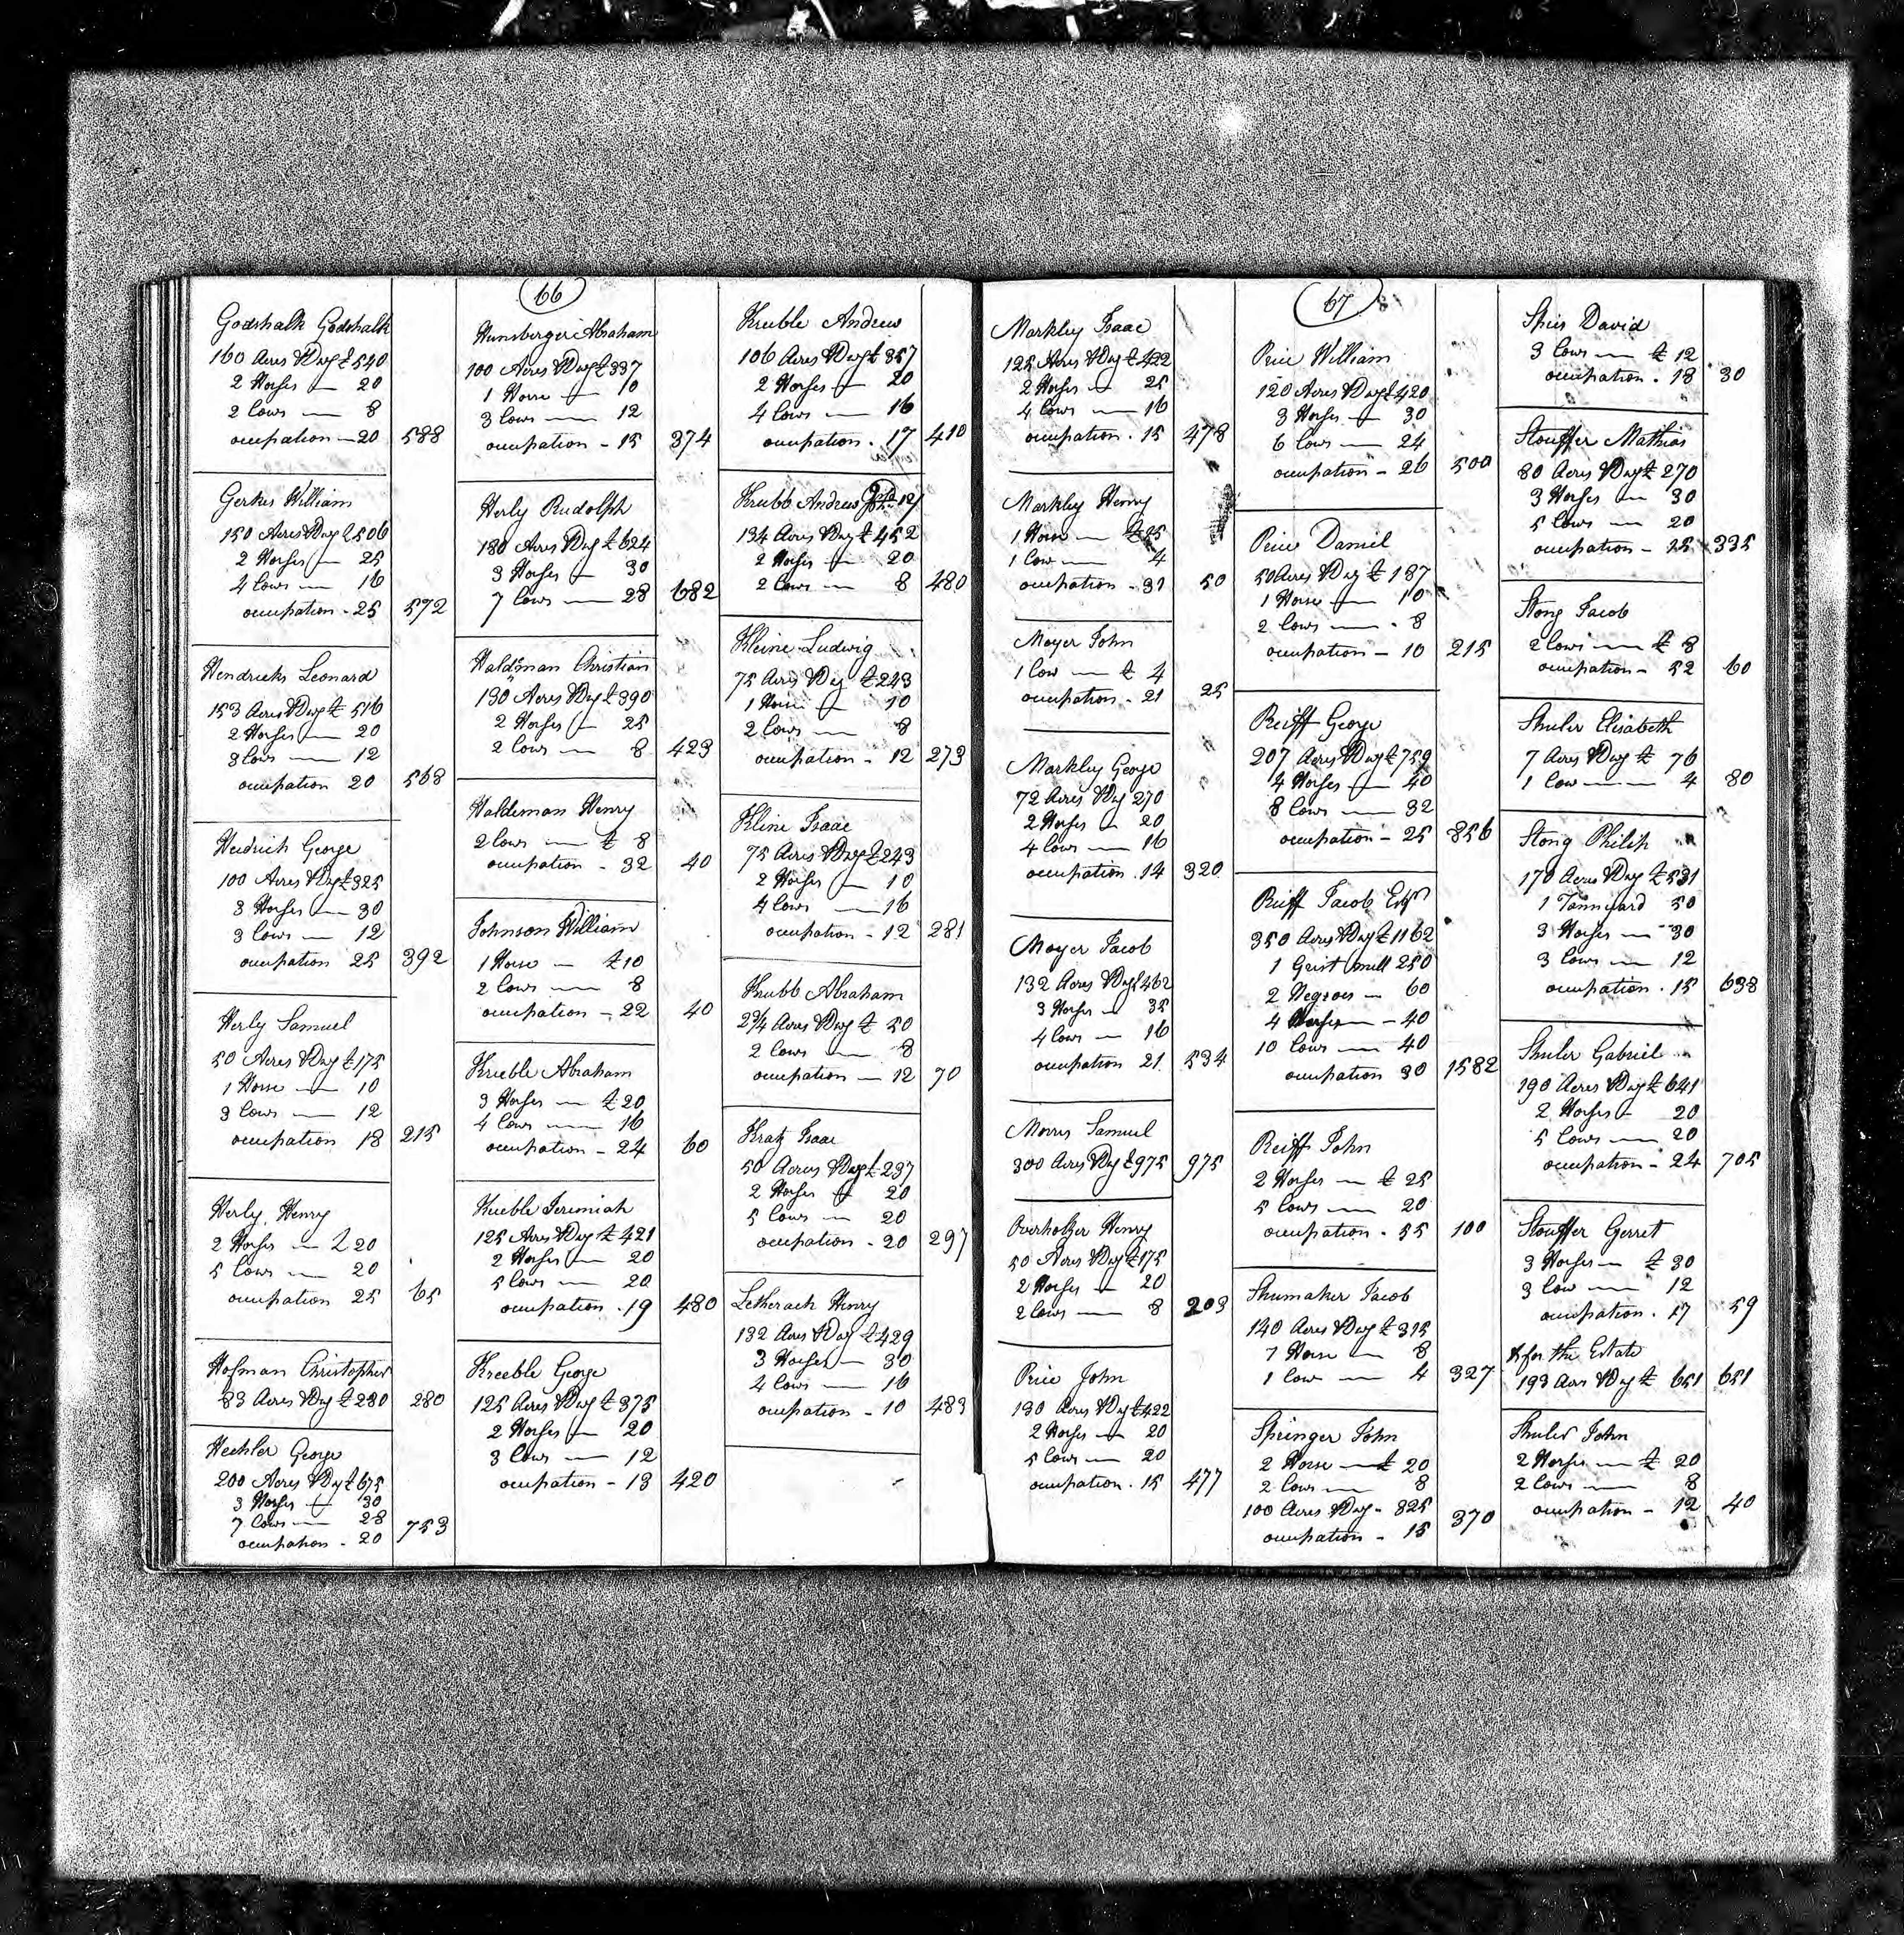 66
Godshalk Godshalk
160 Acres & Dwg £ 540
2 Horses — 20
2 Cows — 8
occupation — 20 588
Gerkes William
150 Acres & Dwg £ 506
2 Horses — 25
4 Cows — 16
occupation - 25 572
Hendricks Leonard
153 Acres & Dwg £ 516
2 Horses — 20
3 Cows — 12
occupation 20 568
Hedrich George
100 Acres & Dwg £ 325
3 Horses — 30
3 Cows — 12
occupation 25 392
Herly Samuel
50 Acres & Dwg £ 175
1 Horse — 10
3 Cows — 12
occupation 18 215
Herly Henry
2 Horses — £ 20
5 Cows — 20
occupation 25 65
Hofman Christopher
83 Acres & Dwg £ 280 280
Hechler George
200 Acres & Dwg £ 675
3 Horses — 30
7 Cows — 28
occupation - 20 753
Hunsberger Abraham
100 Acres & Dwg £ 337
1 Horse — 10
3 Cows — 12
occupation - 15 374
Herly Rudolph
180 Acres & Dwg £ 624
3 Horses — 30
7 Cows — 28 682
Haldeman Christian
130 Acres & Dwg £ 390
2 Horses — 25
2 Cows — 8 423
Haldeman Henry
2 Cows — £ 8
occupation - 32 40
Johnson William
1 Horse — £ 10
2 Cows — 8
occupation - 22 40
Krieble Abraham
3 Horses — £ 20
4 Cows — 16
occupation - 24 60
Krieble Jeremiah
125 Acres & Dwg £ 421
2 Horses — 20
5 Cows — 20
occupation - 19 480
Kreeble George
125 Acres & Dwg £ 375
2 Horses — 20
3 Cows — 12
occupation - 13 420
Kreible Andrew
106 Acres & Dwg £ 357
2 Horses — 20
4 Cows — 16
occupation - 17 410
Krubb Andrew
134 Acres & Dwg £ 452
2 Horses — 20
2 Cows — 8 480
Kleine Ludwig
75 Acres & Dwg £ 243
1 Horse — 10
2 Cows — 8
occupation - 12 273
Kline Isaac
75 Acres & Dwg £ 243
2 Horses — 10
4 Cows — 16
occupation - 12 281
Krubb Abraham
2 3/4 Acres & Dwg £ 50
2 Cows — 8
occupation — 12 70
Kratz Isaac
50 Acres & Dwg £ 237
2 Horses — 20
5 Cows — 20
occupation - 20 297
Letherach Henry
132 Acres & Dwg £ 429
3 Horses — 30
4 Cows — 16
occupation - 10 483
67
Markley Isaac
125 Acres & Dwg £ 422
2 Horses — 25
4 Cows — 16
occupation - 15 478
Markley Henry
1 Horse — £ 25
1 Cow — 4
occupation - 31 50
Moyer John
1 Cow — £ 4
occupation - 21 25
Markley George
72 Acres & Dwg 270
2 Horses — 20
4 Cows — 16
occupation - 14 320
Moyer Jacob
132 Acres & Dwg £ 462
3 Horses — 35
4 Cows — 16
occupation 21 534
Morris Samuel
300 Acres & Dwg £ 975 975
Overholtzer Henry
50 Acres & Dwg £ 175
2 Horses — 20
2 Cows — 8 203
Price John
130 Acres & Dwg £ 422
2 Horses — 20
5 Cows — 20
occupation - 15 477
Price William
120 Acres & Dwg £ 420
3 Horses — 30
6 Cows — 24
occupation - 26 500
Price Daniel
50 Acres & Dwg £ 187
1 Horse — 10
2 Cows — 8
occupation - 10 215
Reiff George
207 Acres & Dwg £ 759
4 Horses — 40
8 Cows — 32
occupation - 25 856
Reiff Jacob Esqr
350 Acres & Dwg £ 1162
1 Grist mill 250
2 Negroes — 60
4 Horses — 40
10 Cows — 40
occupation 30 1582
Reiff John
2 Horses — £ 25
5 Cows — 20
occupation - 55 100
Shumaker Jacob
140 Acres & Dwg £ 315
1 Horse — 8
1 Cow — 4 327
Springer John
2 Horse — £ 20
2 Cows — 8
100 Acres & Dwg - 325
occupation - 15 370
Spies David
3 Cows — £ 12
occupation - 18 30
Stouffer Mathias
80 Acres & Dwg £ 270
3 Horses — 30
5 Cows — 20
occupation - 25 335
Stong Jacob
2 Cows — £ 8
occupation - 52 60
Shuler Elisabeth
7 Acres & Dwg £ 76
1 Cow — 4 80
Stong Philip
170 Acres & Dwg £ 531
1 Tannyard 50
3 Horses — 30
3 Cows — 12
occupation - 15 638
Shuler Gabriel
190 Acres & Dwg £ 641
2 Horses - 20
5 Cows — 20
occupation - 24 705
Stouffer Gerret
3 Horses — £ 30
3 Cow — 12
occupation - 17 59
& for the Estate
193 Acres & Dwg £ 651 651
Shuler John
2 Horses — £ 20
2 Cows — 8
occupation - 12 40